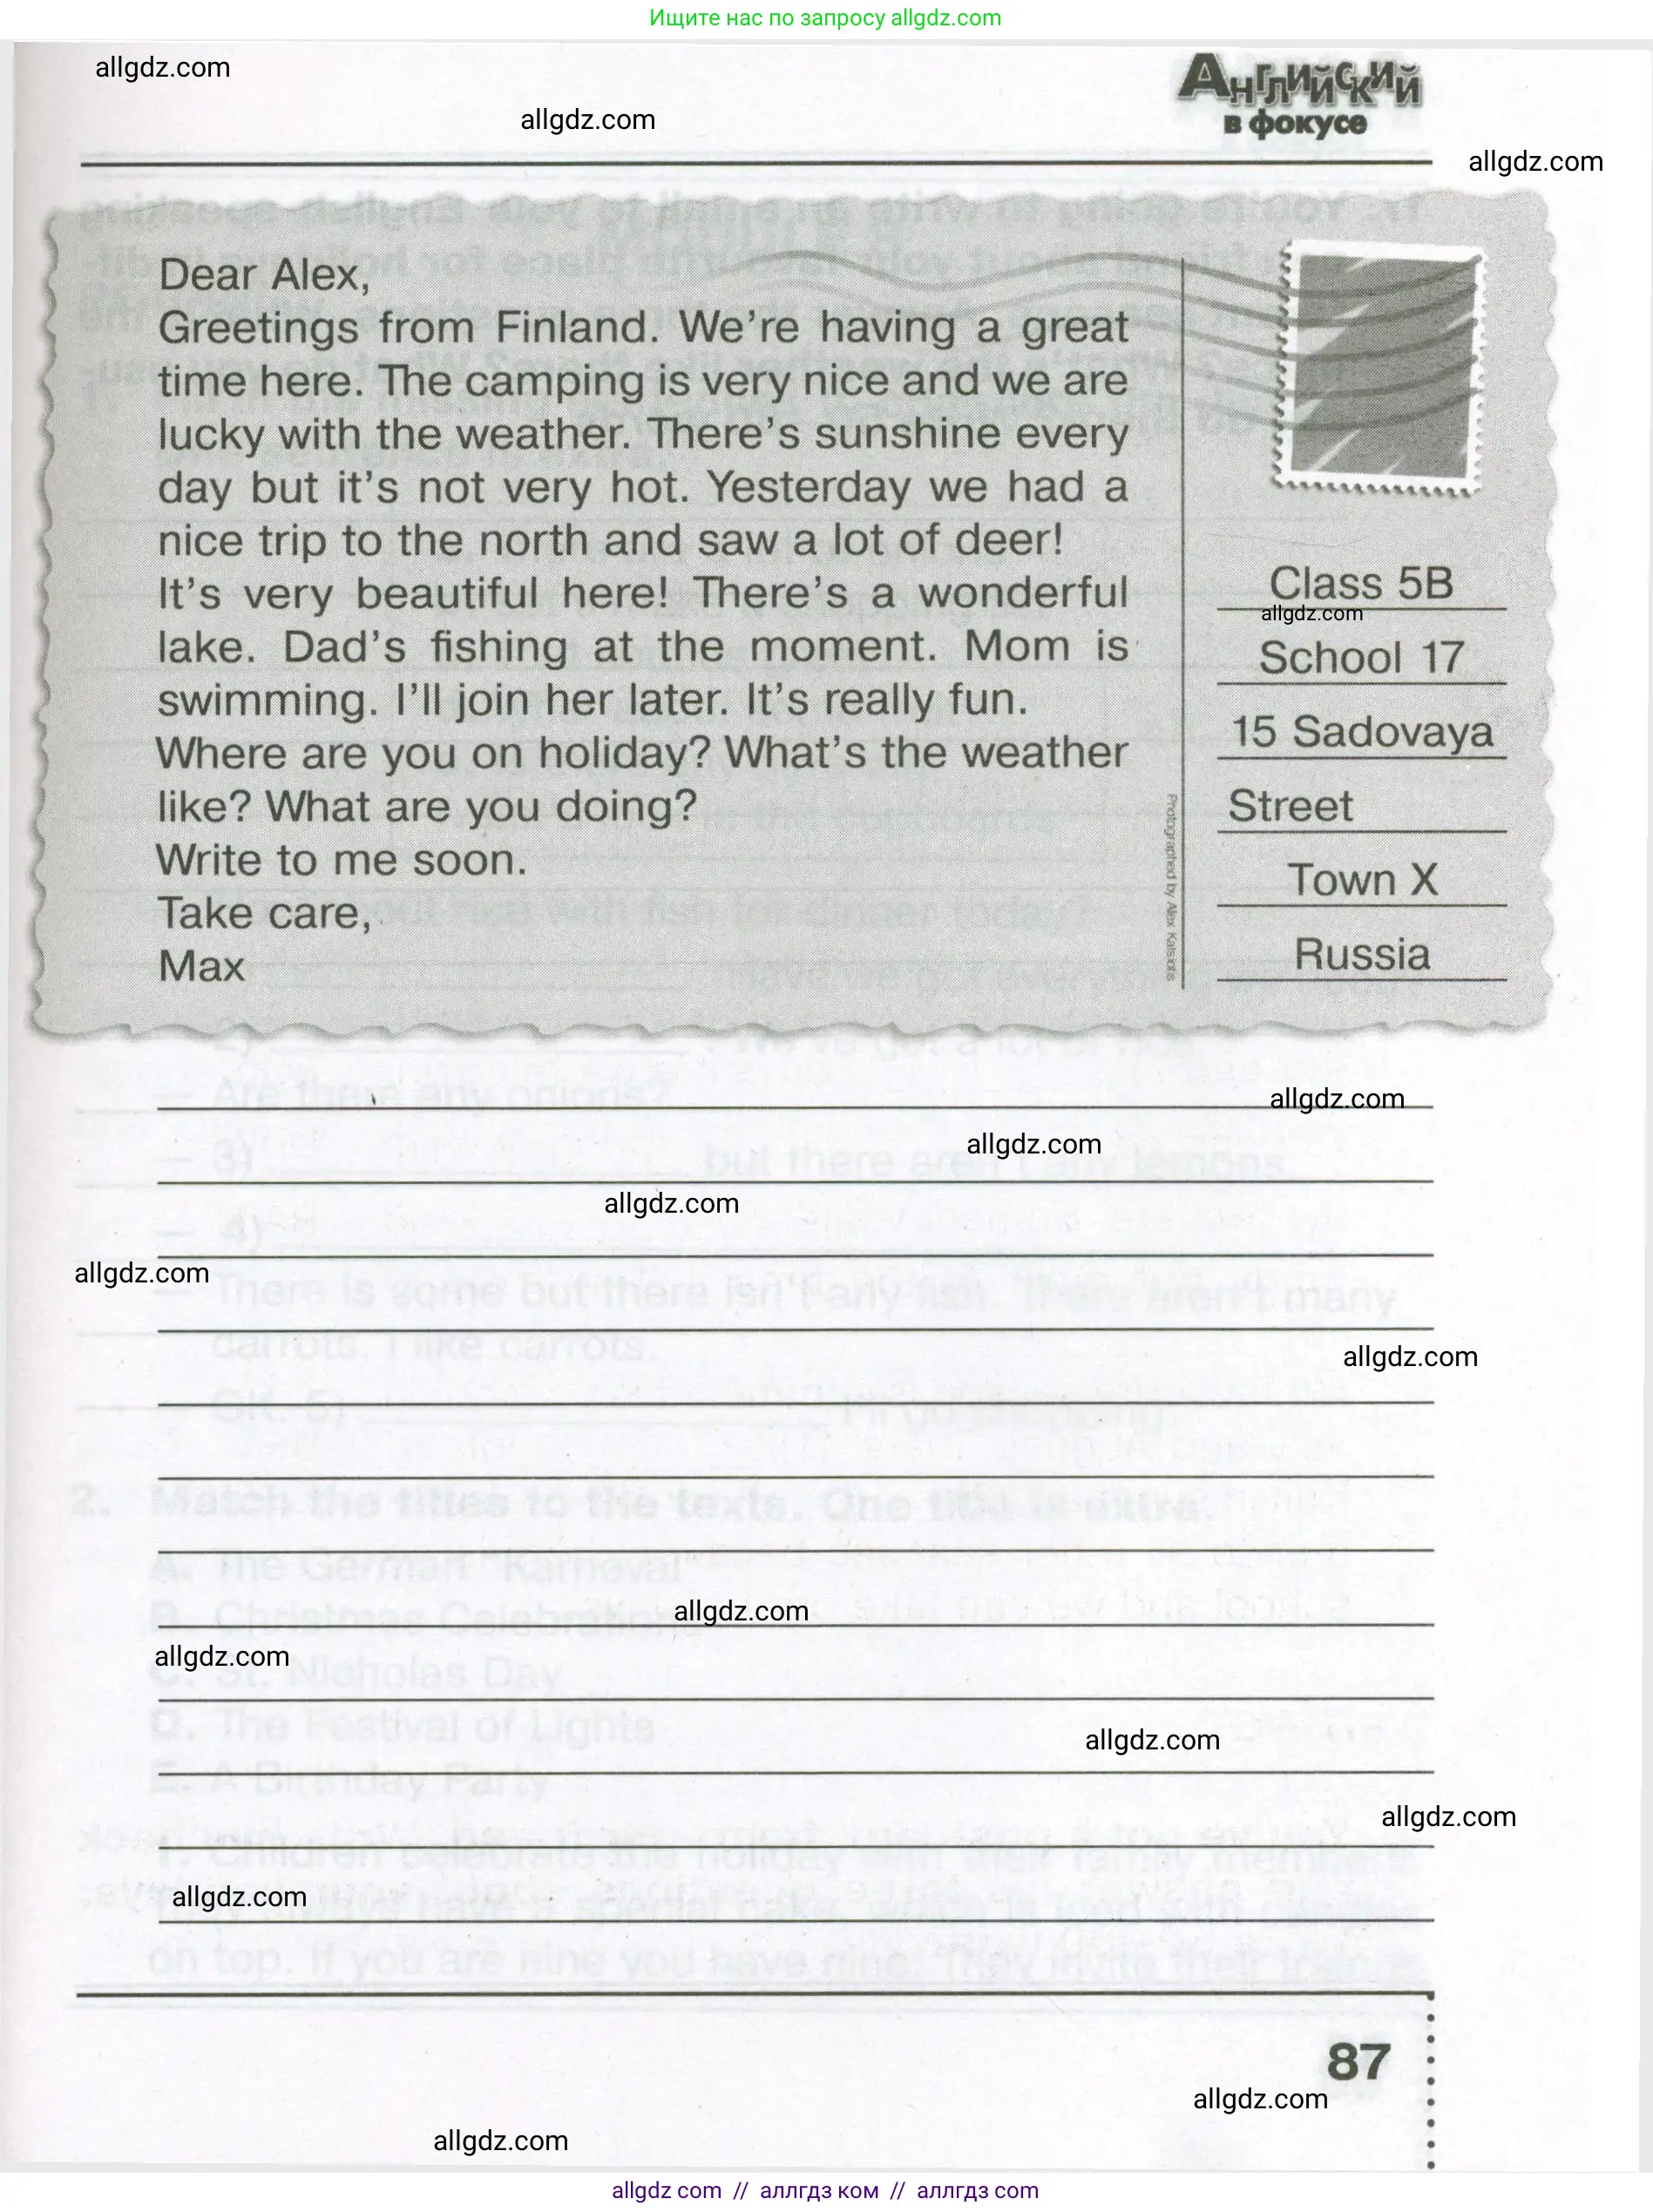 Ищите нас по запросу allgdz.com
allgdz.com
Английский
в фокусе
allgdz.com
allgdz.com
Dear Alex,
Greetings from Finland. We're having a great
time here. The camping is very nice and we are
lucky with the weather. There's sunshine every
day but it's not very hot. Yesterday we had a
nice trip to the north and saw a lot of deer!
It's very beautiful here! There's a wonderful
lake. Dad's fishing at the moment. Mom is
swimming. I'll join her later. It's really fun.
Where are you on holiday? What's the weather
like? What are you doing?
Write to me soon.
Take care,
Max
Photographed by Alex Katsaits
Class 5B
allgdz.com
School 17
15 Sadovaya
Street
Town X
Russia
allgdz.com
allgdz.com
allgdz.com
allgdz.com
allgdz.com
allgdz.com
allgdz.com
allgdz.com
allgdz.com
allgdz.com
87
allgdz.com
allgdz.com
allgdz com // аллгдз ком // аллгдз com